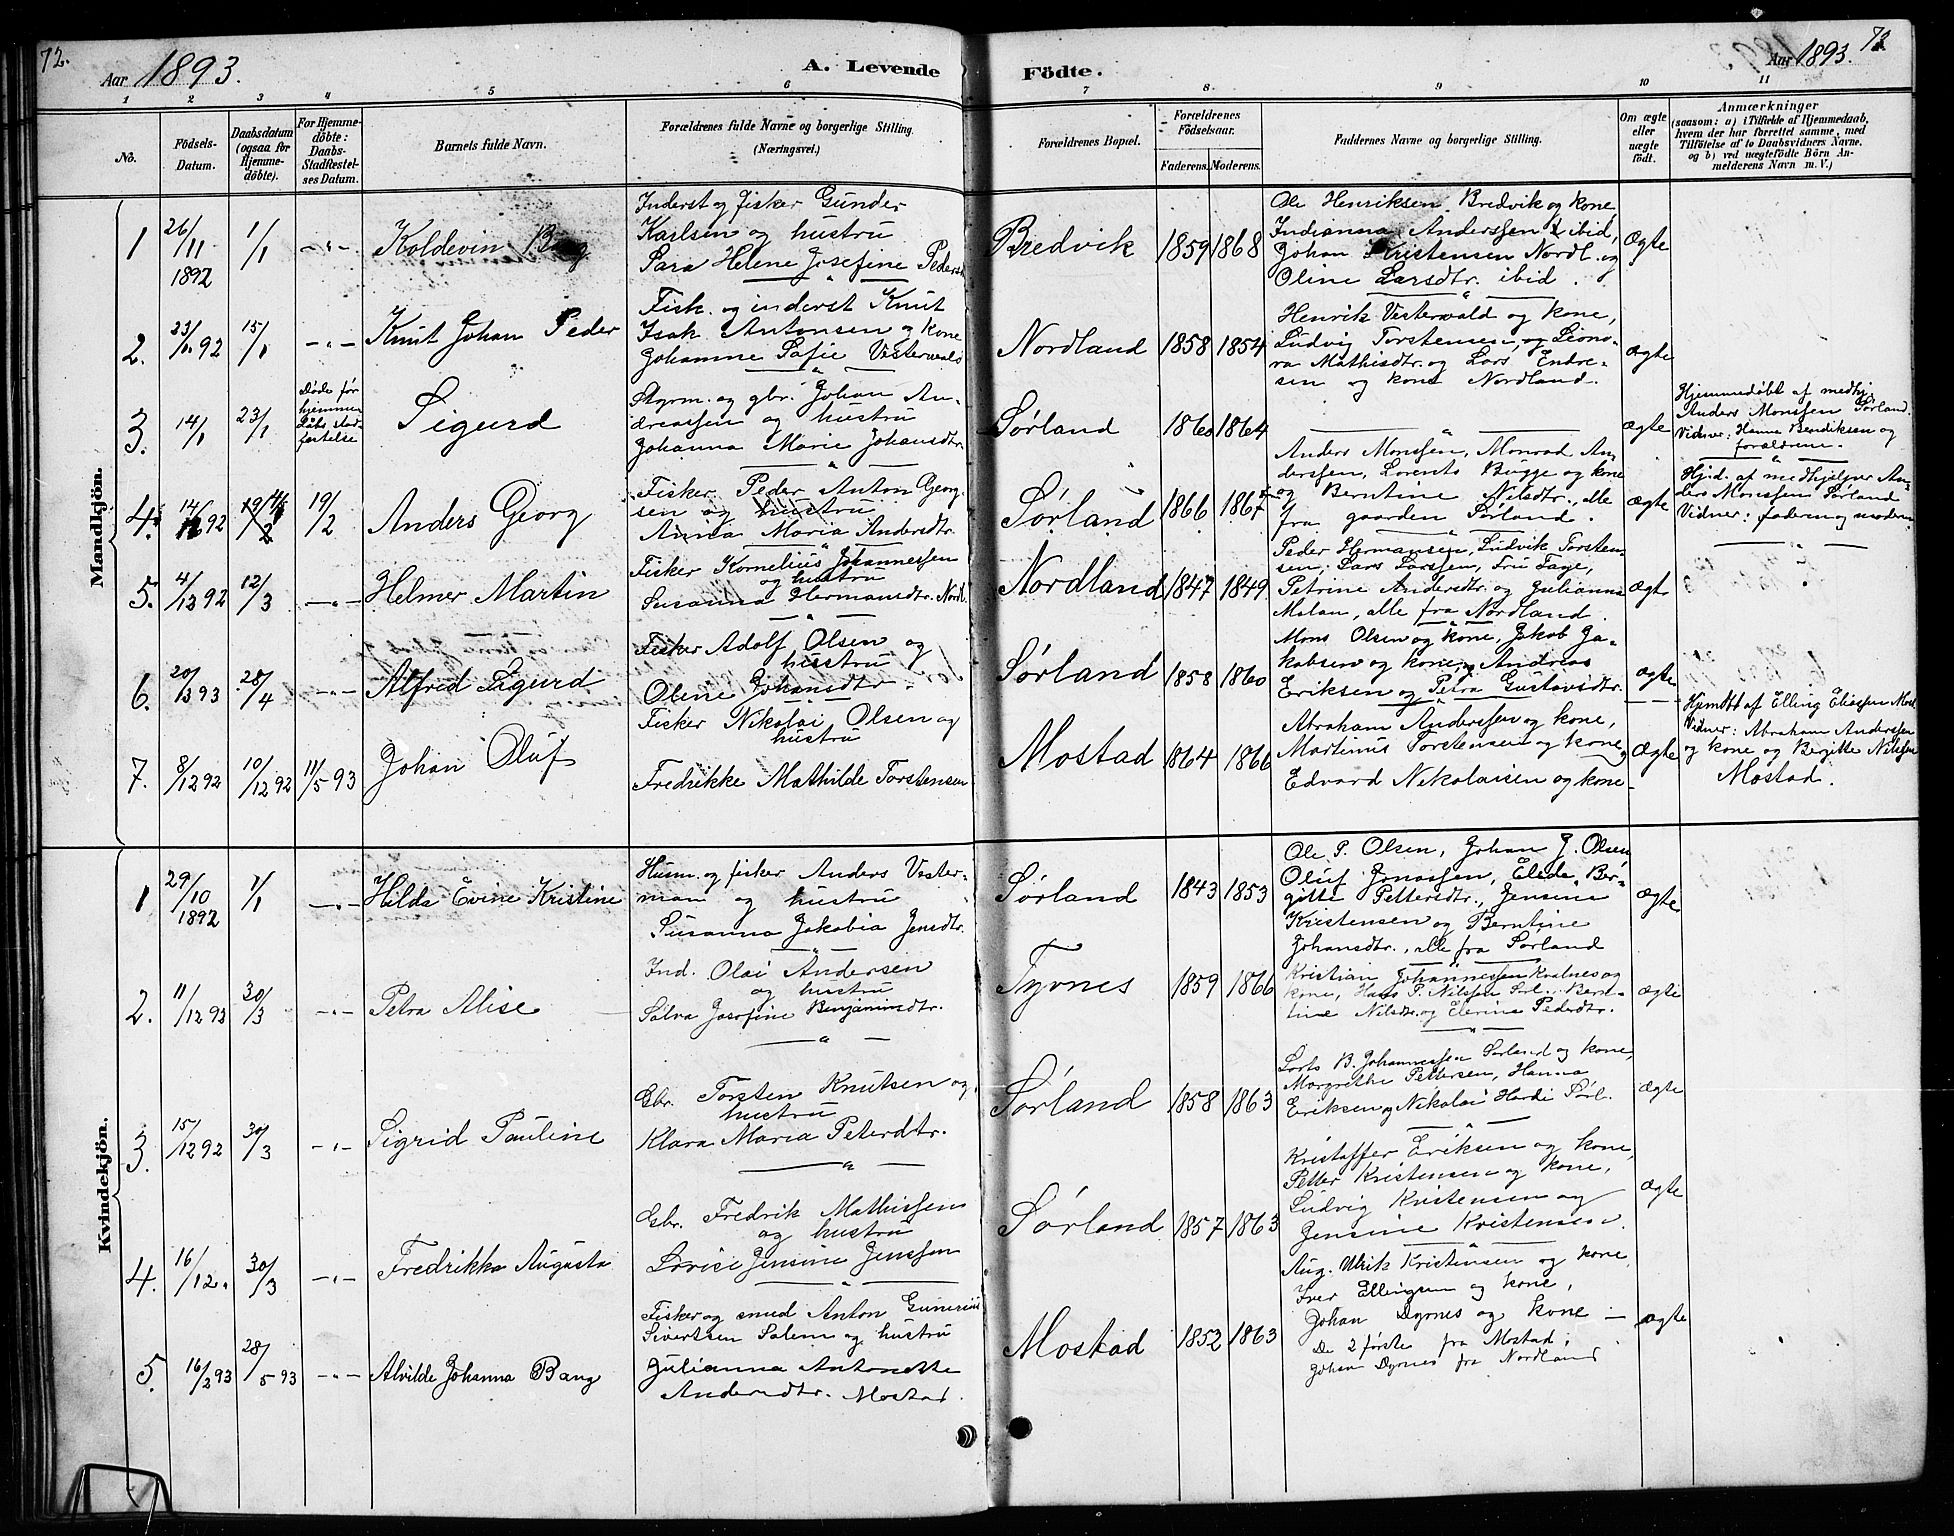 72.
Aar 1893.
A. Levende Födte.
Aar 1893.
72
1 2 3 4 5 6 7 8 9 10 11
No.
Födsels-Datum.
Daabsdatum (ogsaa for Hjemme-döbte).
For Hjemme-döbte: Daabs-Stadfæstel-ses Datum.
Barnets fulde Navn.
Forældrenes fulde Navne og borgerlige Stilling. (Næringsvei.)
Forældrenes Bopæl.
Forældrenes Födselsaar.
Faderens. Moderens.
Faddernes Navne og borgerlige Stilling.
Om ægte eller uægte födt.
Anmærkninger
(saasom: a) i Tilfælde af Hjemmedaab, hvem der har forrettet samme, med Tilföielse af to Daabsvidners Navne, og b) ved uægtefödte Börn An-melderens Navn m. V.)
Mandkjön.
1 26/11 1892 1/1 -"- Koldevin Bang
Inderst og fisker Gunder
Karlsen og hustru
Sara Helene Josefine Peders
Bredvik 1859 1868
Ole Henriksen Bredvik og kone,
Indianna Anderssen ibid,
Johan Kristensen Nordl. og
Oline Larsdtr. ibid.
Ægte
2. 23/10 92 15/1 -"- Knut Johan Peder
Fisk. og inderst Knut
Isak Antonsen og kone
Johanne Sofie Vesterwald
Nordland 1858 1854
Henrik Vesterwald og kone,
Ludvig Torstensen, og Leono-
ra Mathisdtr. og Lars Endre-
sen og kone Nordland.
ægte
3. 14/1 23/1 Døde før hjemme daabs stad-festelse
Sigurd
Styrm. og gbr. Johan An-
dreassen og hustru
Johanna Marie Johansdtr.
Sørland 1860 1864
ægte
Hjemmedøbt af medhj.
Anders Monssen Sørland.
Vidner: Hanna Bendiksen og
forældrene.
4. 14/12 92 19/2 Anders Georg
Fisker Peder Anton Georg-
sen og hustru
Anna Maria Andersdtr.
Sørland 1866 1867
Anders Monssen, Monrad An-
derssen, Lorents Bugge og kone
og Berntine Nilsdtr., alle
fra gaarden Sørland.
Ægte
Hjd. af medhjelper An-
ders Monssen Sørland
Vidner: faderen og moderen
5. 4/12 92 12/3 -"- Helmer Martin
Fisker Kornelius Johannessen
og hustru
Susanna Hermansdtr. Nordl.
Nordland 1847 1849
Peder Hermansen, Ludvik Torsten-
sen, Lars Larssen, Fru Tage,
Petrine Andersdtr. og Julianna
Malan, alle fra Nordland.
Ægte
6. 20/3 93 28/4 -"- Alfred Sigurd
Fisker Adolf Olsen og
husstru
Olene Johansdtr.
Sørland 1858 1860
Mons Olsen og kone, Jakob Ja-
kobsen og kone, Andreas
Eriksen og Petra Gustavsdtr.
ægte
7. 8/12 92 10/12 92 11/5 93 Johan Oluf
Fisker Nikolai Olsen og
hustru
Fredrikke Mathilde Torstensen
Mostad 1864 1866
Abraham Anderssen og kone,
Martinus Torstensen og kone,
Edvard Nikolaisen og kone-
Ægte
Hjemdbt af Elling Eliassen Most
Vidner: Abraham Anderssen
og kone og Bergitte Nilssen
Mostad.
Kvindekjön.
1 29/10 1892 1/1 -"- Hilda Evine Kristine
Husm. og fisker Anders Vester-
man og hustru
Susanna Jakobia Jensdtr.
Sørland 1843 1853
Ole P. Olsen, Johan J. Olsen
Oluf Jonassen, Elida, Ber-
gitte Pettersdtr., Jensine
Kristensen og Berntine
Johansdtr., alle fra Sørland
ægte
2. 11/12 92 30/3 -"- Petra Alise
Ind. Olai Andersen
og hustru
Salva Josefine Benjaminsdtr.
Tyvnes 1859 1866
Kristian Johannessen Kvalnes og
kone, Hans P. Nilssen Sørl., Bern-
tine Nilsdtr. og Elerine Pederdtr.
ægte
3. 15/12 92 30/3 -"- Sigrid Pauline
Gbr. Torsten Knutsen og
hustru
Klara Maria Petersdtr.
Sørland 1858 1863
Lorts B. Johannessen Sørland og kone,
Margrethe Pettersen, Hanna
Eriksen og Nikolai Hardi Sørl.
ægte
4. 16/12. 30/3 -"- Fredrikka Augusta
Gbr. Fredrik Mathissen
og hustru
Lovise Jensine Jenssen
Sørland 1857 1863
Kristoffer Eriksen og kone,
Petter Kristensen og kone,
Ludvig Kristensen og
Jensine Kristensen.
ægte
5. 16/2 93 28/5 93 -"- Alvilde Johanna Bang
Fisker og smed Anton Gunerius
Sivertsen Salem og hustru
Julianna Antonette
Andersdtr. Mostad.
Mostad 1852 1863
Aug. Ulrik Kristensen og kone,
Iver Ellingsen og kone,
Johan Dyrnes og kone -
De 2 første fra Mostad;
Johan Dyrnes fra Nordland
ægte